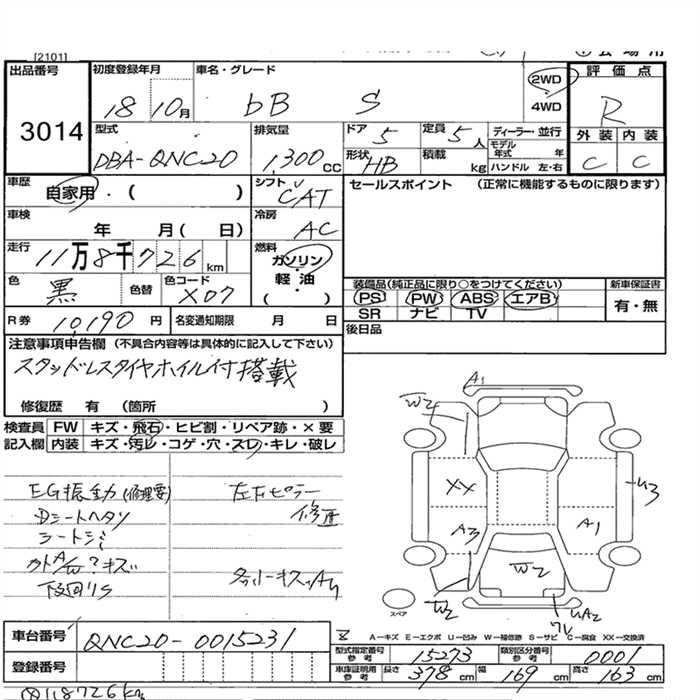 [2101]
出品番号 3014
初度登録年月 18 10月
車名・グレード bB S
2WD
4WD
評価点 R
外装 C 内装 C
型式 DBA-QNC20
排気量 1,300cc
ドア 5
定員 5人
形状 HB
積載 kg
ディーラー・並行
モデル年式 年
ハンドル 左・右
車歴 自家用・( )
シフト CAT
セールスポイント (正常に機能するものに限ります)
車検 年 月(日)
冷房 AC
走行 11万8千726km
燃料 ガソリン・軽油・( )
色 黒 色替 色コード X07
装備品(純正品に限り○をつけてください)
PS PW ABS エアB
SR ナビ TV
新車保証書 有・無
R券 10,190円
名変通知期限 月 日
後日品
注意事項申告欄 (不具合内容等は具体的に記入して下さい)
スタッドレスタイヤホイル付搭載
修復歴 有 (箇所 )
検査員記入欄
FW キズ・飛石・ヒビ割・リペア跡・×要
内装 キズ・汚レ・コゲ・穴・スレ・キレ・破レ
EG振動(修理要)
Dシートヘタリ
左下ピラー
下回りS
A1
W2
XX
A3
A1
U3
W2
W2
UA2
スペア
A－キズ E－エクボ U－凹み W－補修跡 S－サビ C－腐食 XX－交換済
車台番号 QNC20-0015231
登録番号
型式指定番号 参考 15273
類別区分番号 参考 0001
車庫証明用 参考 長さ 378cm 幅 169cm 高さ 163cm
118726km